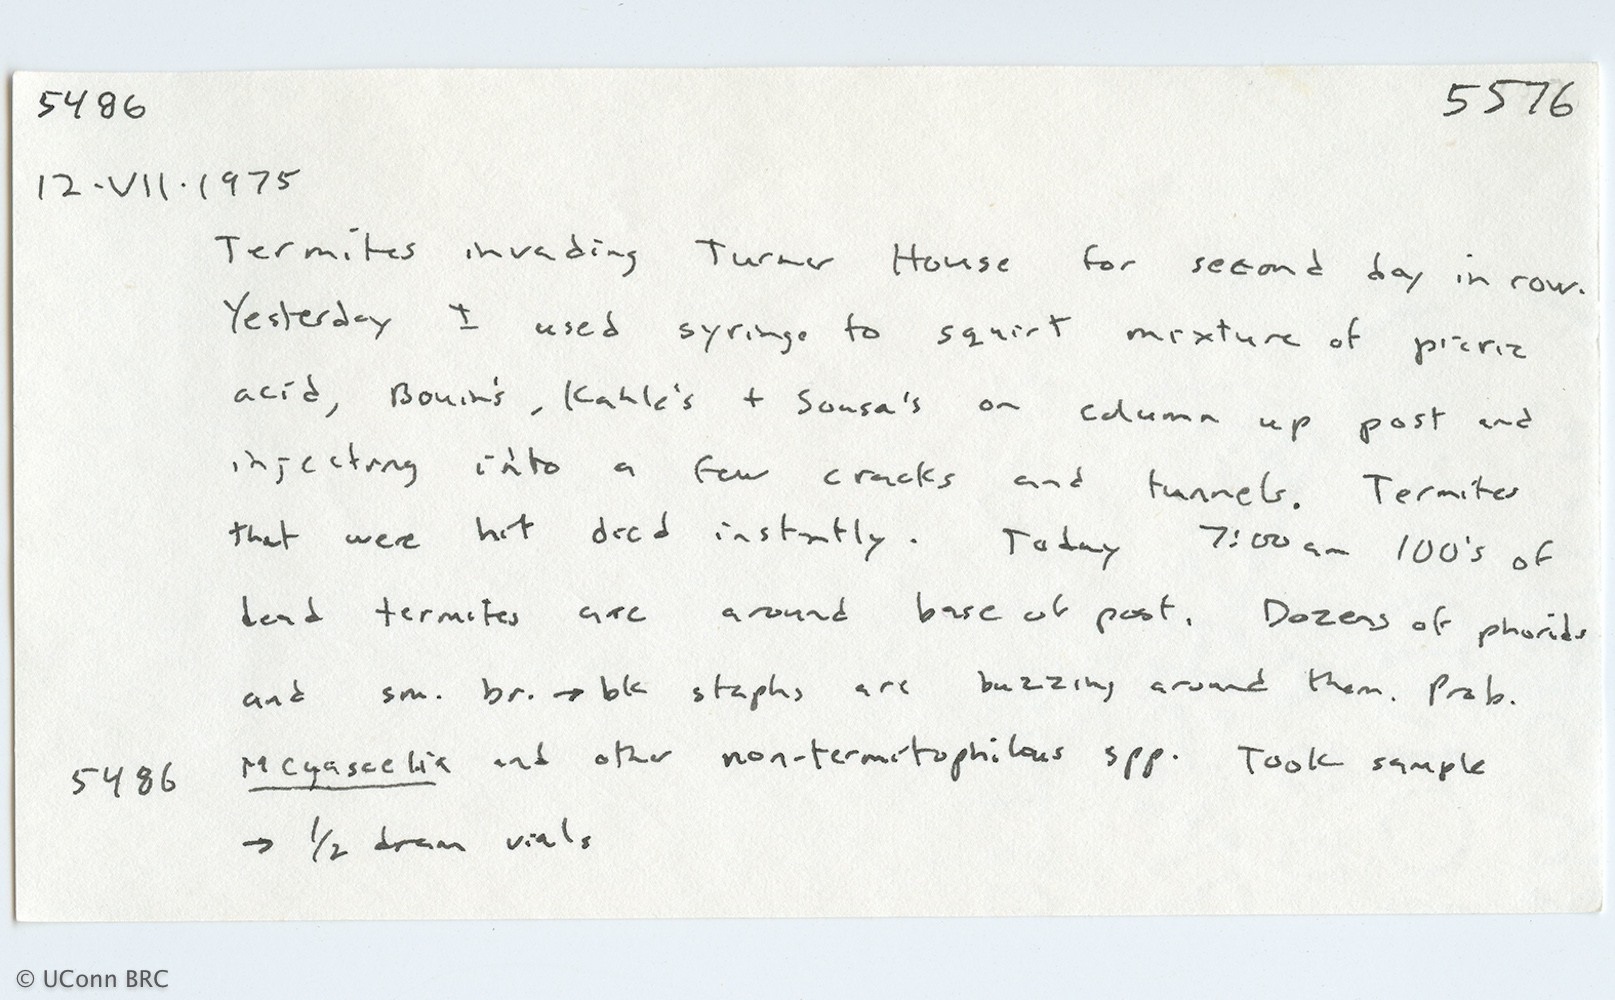 5486 5576
12·VII·1975
Termites invading Turner House for second day in row.
Yesterday I used syringe to squirt mixture of picric
acid, Bouin's, Kahle's + Sousa's on column up post and
injecting into a few cracks and tunnels. Termites
that were hit died instantly. Today 7:00 am 100's of
dead termites are around base of post. Dozens of phorids
and sm. br. → bk staphs are buzzing around them. Prob.
5486 Megaselia and other non-termitophilous spp. Took sample
→ 1/2 dram vials
© UConn BRC